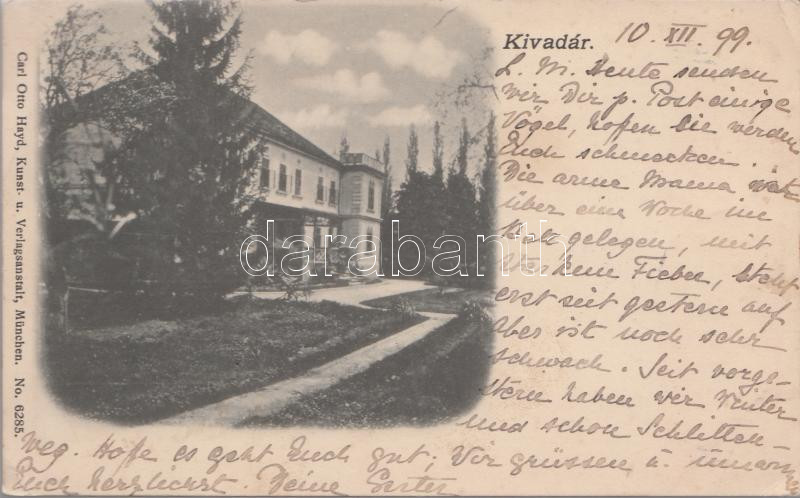 Kivadár.
10. XII. 99.
L. M. Heute senden
wir Dir p. Post einige
Vögel, hoffen Sie werden
Euch schmecken.
Die arme Mama war
über eine Woche im
Bett gelegen, mit
hohem Fieber, steht
erst seit gestern auf
Aber ist noch sehr
schwach. Seit vorge-
stern haben wir Winter
und schon Schlitten-
weg. Hoffe es geht Euch gut; Wir grüssen u. umarmen
Euch herzlichst. Deine Ester
Carl Otto Hayd, Kunst- u. Verlagsanstalt, München. No. 6285.
darabanth.com